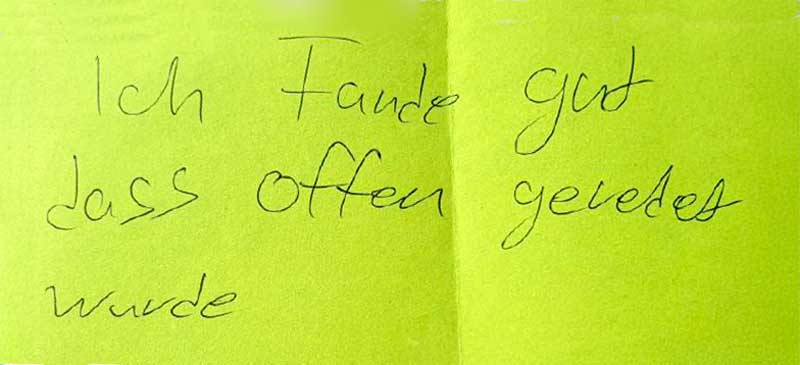 Ich Fande gut
dass offen geredet
wurde